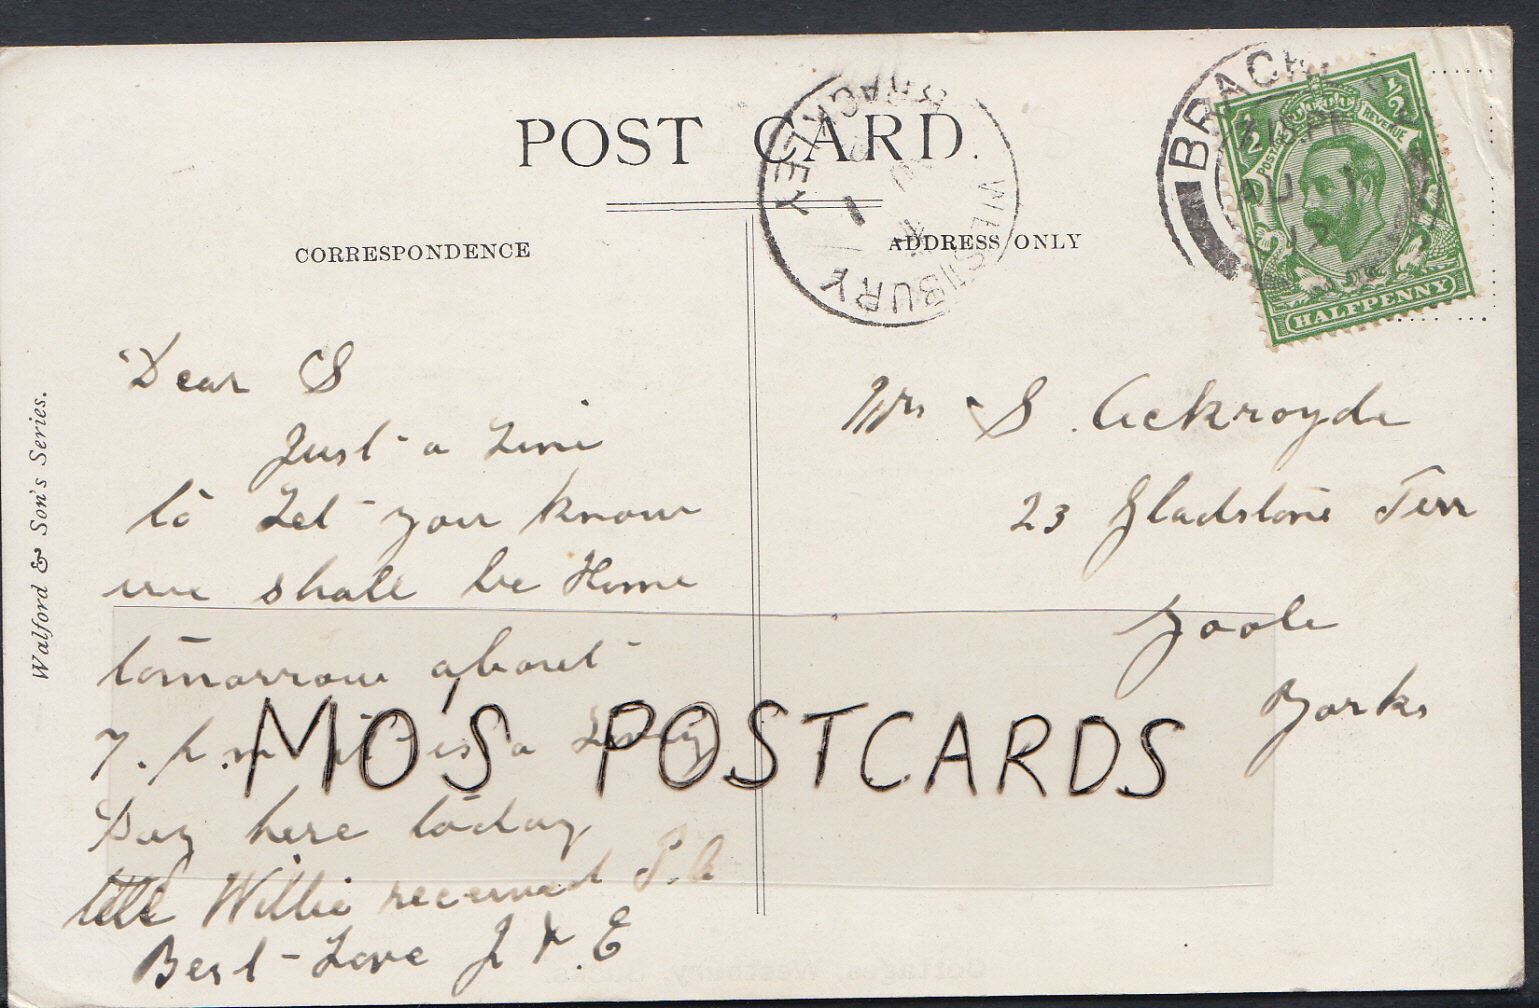 POST CARD.
CORRESPONDENCE
ADDRESS ONLY
Walford & Son's Series.
WESTBURY BRACKLEY
1
BRACK
AU 1
12
POSTAGE REVENUE
½ ½
HALFPENNY
Dear S
Just a Line
to Let you know
we shall be Home
tomorrow about
7.p.m it is a
Day here today
tell Willie received P.C
Best Love J & E
Mrs S. Ackroyde
23 Gladstone Terr
Goole
Yorks
MO'S POSTCARDS
Cottages, Westbury, Bucks.